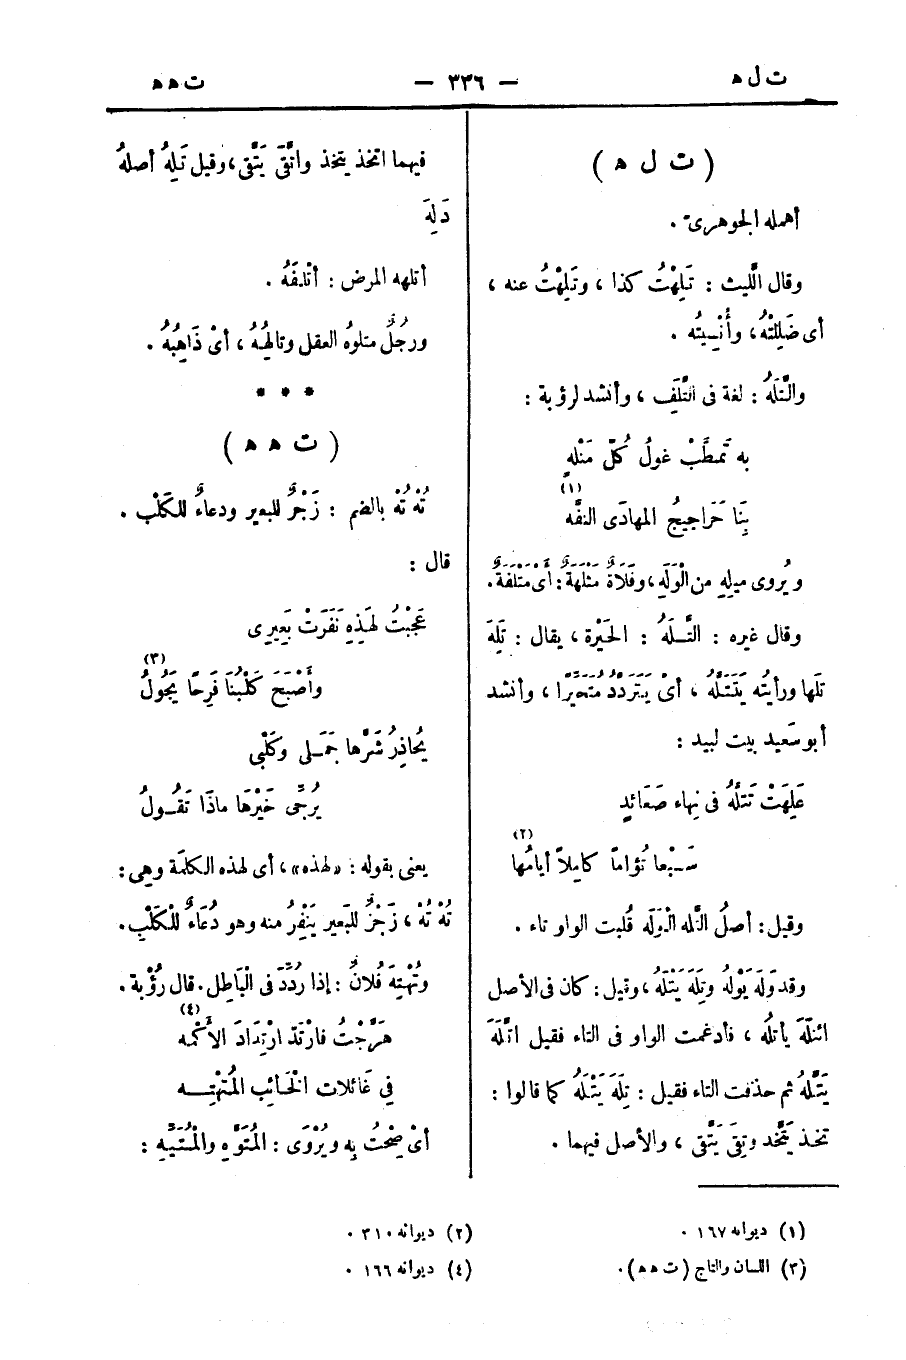 ت ل ه — ٣٣٦ — ت ه ه
( ت ل ه )
أهمله الجوهرىّ .
وقال اللَّيث : تَلِهْتُ كذا ، وتَلِهْتُ عنه ،
أى ضَلِلْتُه ، وأُنْسِيتُه .
والتَّلَهُ : لغة فى التَّلَفِ ، وأنشد لرؤبة :
به تَمَطَّتْ غولُ كُلِّ مَتْلَهِ
بِنَا حَرَاجِيجُ المهَادَى النفَّه (١)
ويُروى ميلِهِ من الْوَلَهِ ، وفَلَاةٌ مَتْلَهَةٌ : أىْ مَتْلَفَةٌ .
وقال غيره : التَّلَهُ : الحَيْرة ، يقال : تَلِهَ
تَلَهاً ورأيتُه يَتَتَلَّهُ ، أىْ يَتَرَدَّدُ مُتَحَيِّرًا ، وأنشد
أبو سَعيد بيت لبيد :
عَلِهَتْ تَتلَّهُ فى نِهاء صَعَائدٍ
سَبْعا تُؤاماً كاملاً أيامُها (٢)
وقيل : أصلُ التَّله الْوَلَه قُلبت الواو تاء .
وقد وَلَهَ يَوْلَهُ وتَلِهَ يَتْلَهُ ، وقيل : كان فى الأصل
ائتَلَهَ يأتَلهُ ، فأدغمت الواو فى التاء فقيل اتَّلَهَ
يَتَّلهُ ثم حذفت التاء فقيل : تَلِهَ يَتْلَهُ كما قالوا :
تخذ يَتَّخذ وتقِىَ يَتَّقى ، والأصل فيهما .
فيهما اتخذ يتخذ واتَّقَى يَتَّقى ، وقيل تَلِهُ أصلهُ
دَلِهَ
أتلهه المرض : أتْلَفَهُ .
ورجُلٌ متلوهُ العقل وتالهُهُ ، أىْ ذَاهِبُهُ .
* * *
( ت ه ه )
تُهْ تُهْ بالضم : زَجْرٌ للبعير ودعاءٌ للكَلْب .
قال :
عَجِبْتُ لهَذِهِ نَفَرَتْ بَعِيرِى
وأَصْبَحَ كَلْبُنَا فَرِحًا يَجُولُ (٣)
يُحاذِرُ شَرَّها جَمَلى وكَلْبى
يُرَجِّى خَيْرَهَا ماذَا تَقُولُ
يعنى بقوله : «لهذه» ، أى لهذه الكلمَة وهى :
تُهْ تُهْ ، زَجْرٌ للبَعير يَنْفِرُ منه وهو دُعَاءٌ لِلْكَلْبِ .
وتُهْتِهَ فُلانٌ : إذا رُدِّدَ فى الْبَاطِل . قال رُؤْبة .
هَرَّجْتُ فارْتَدَّ ارْتِدَادَ الأَكْمَه (٤)
فِى غَائلات الْخَائِب الْمُتَهْتِه
أىْ صِحْتُ بِه ويُرْوَى : الْمُتَوَّهِ والْمُتَيَّهِ :
(١) ديوانه ١٦٧ . (٢) ديوانه ٣١٠ .
(٣) اللسان والتاج (ت ه ه) . (٤) ديوانه ١٦٦ .